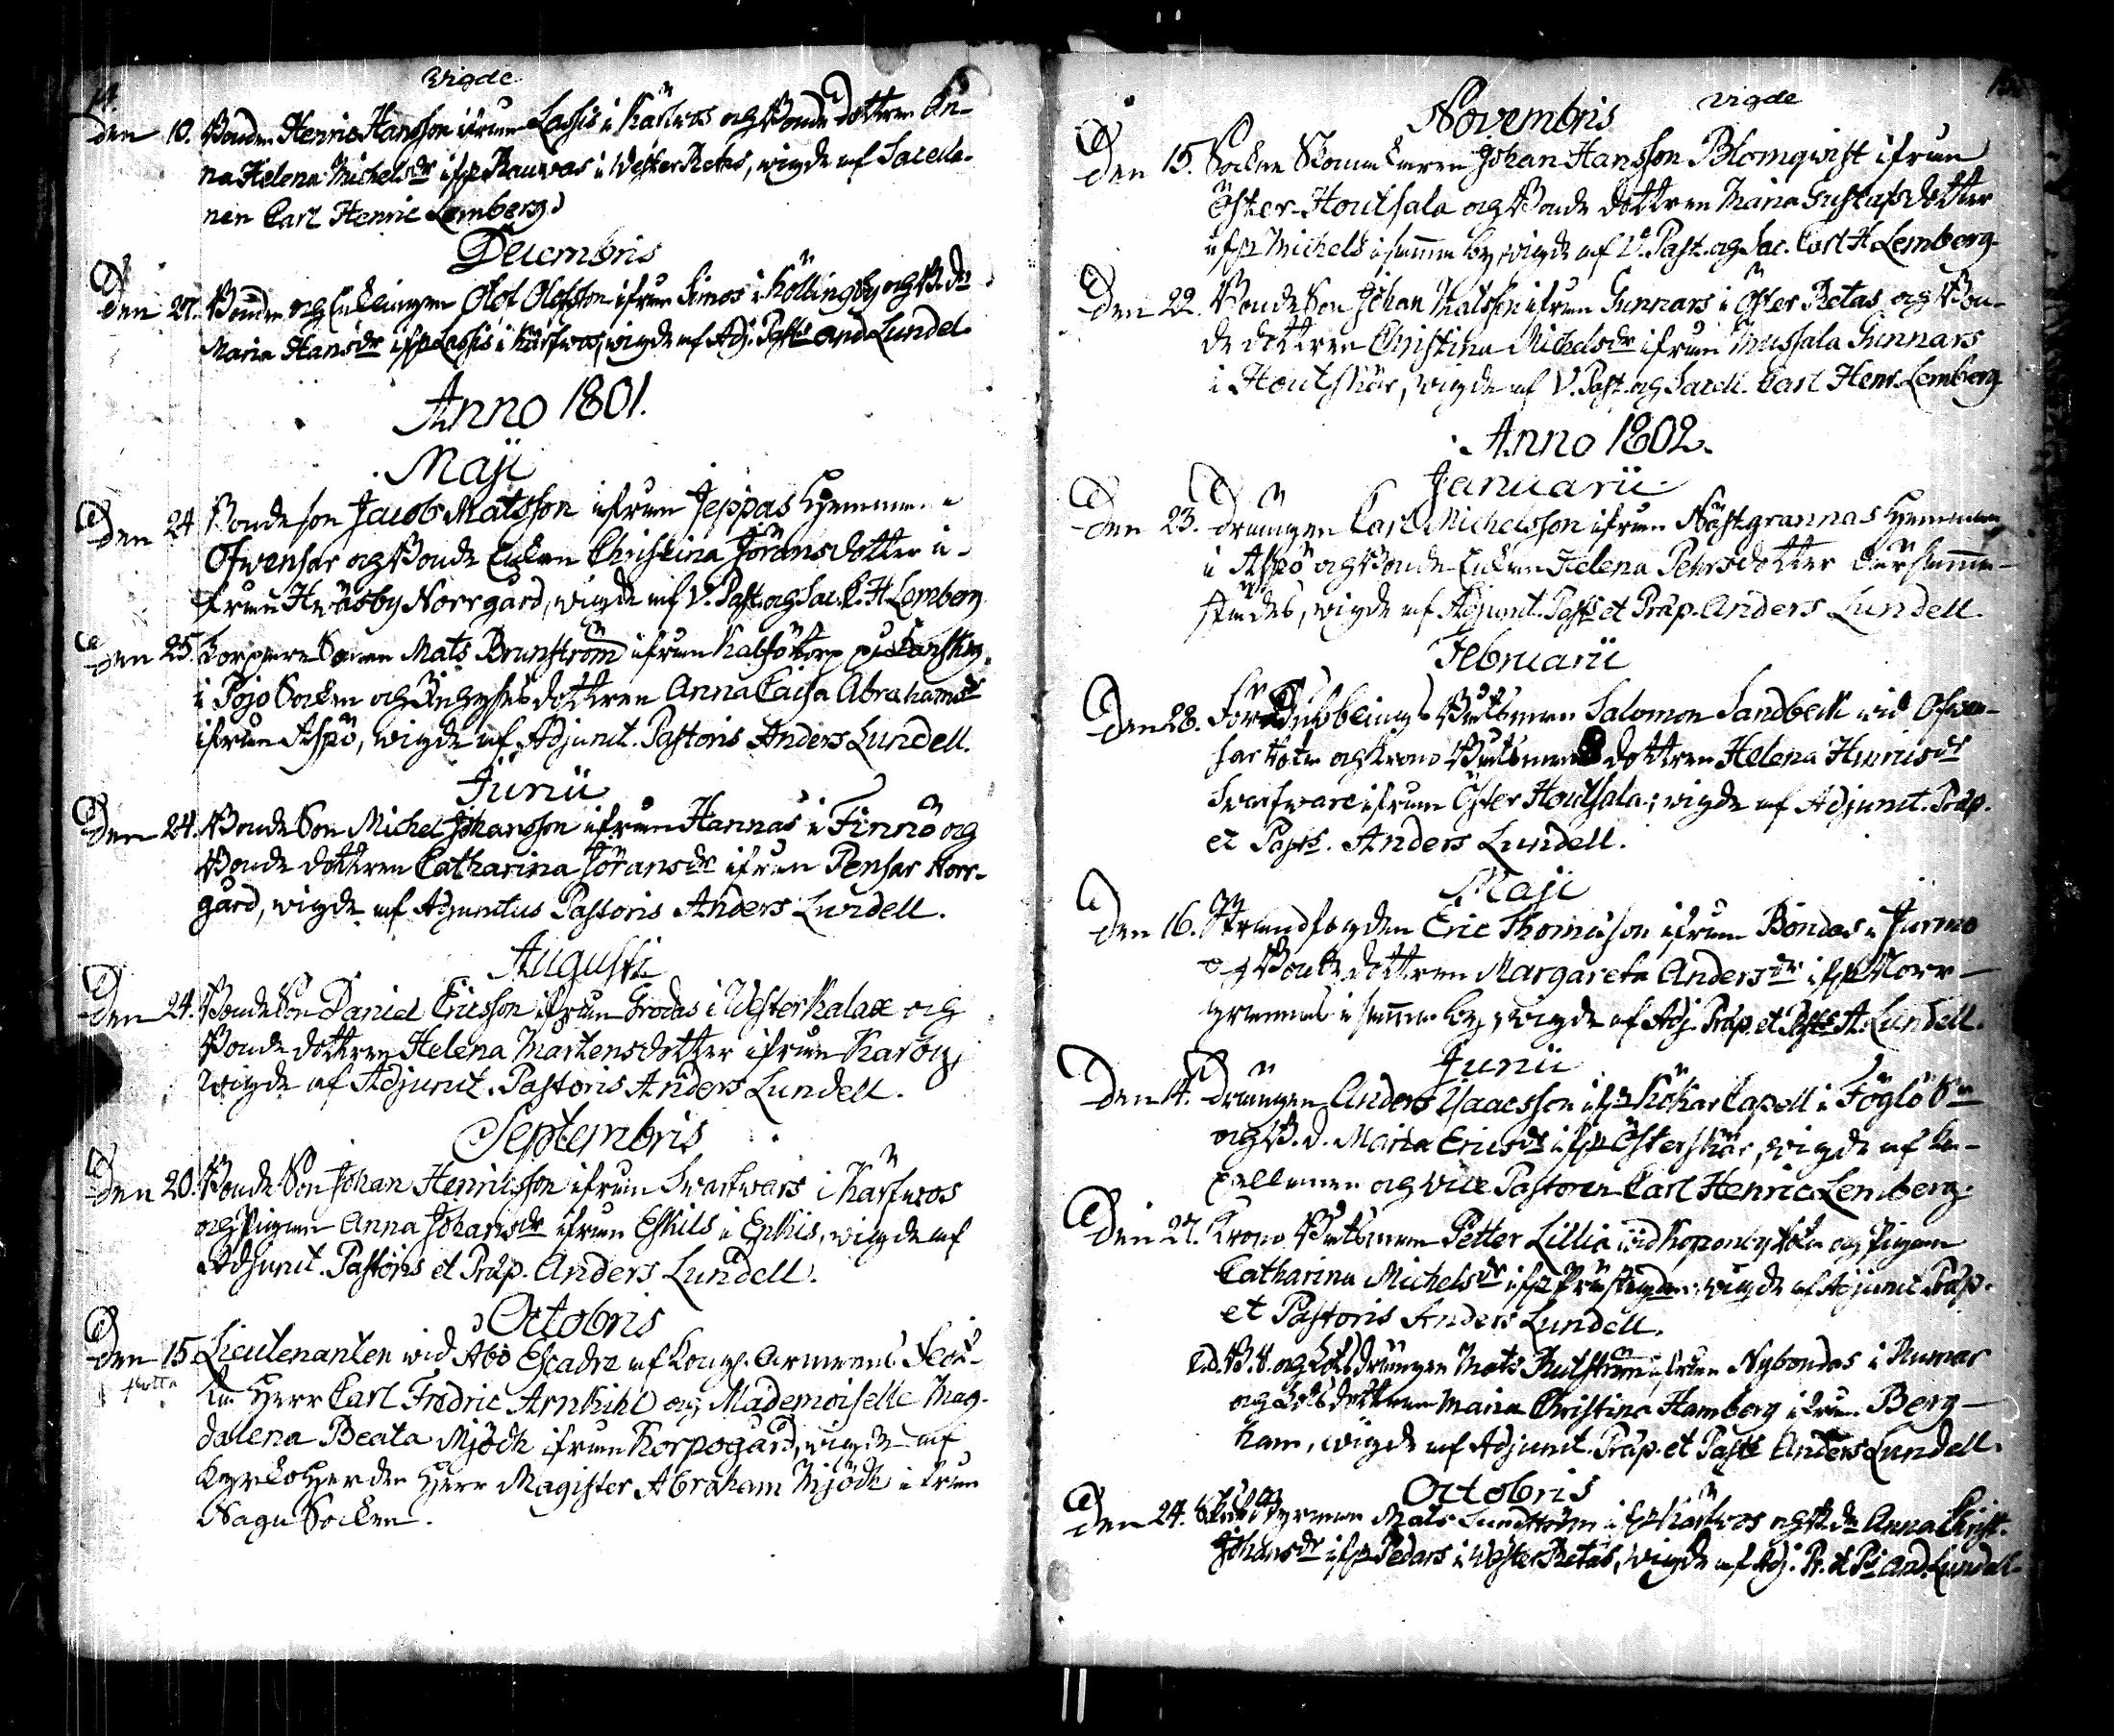 14.
Vigde
Den 10. Bonden Henric Hansson ifrån Lassis i Kälwas og Bonde dottren An-
na Helena Michelsdr ifr Rauwas i Wester Retas, wigde af Sacella-
nen Carl Henric Lemberg.
Decembris
Den 27. Bonden og Enklingen Olof Olofsson ifrån Simos i Köllingby og B. dr
Maria Hansdr ifr Lassis i Kärfwas, wigde af Adj. Past. And. Lundel
Anno 1801.
Maji
Den 24 Bonde son Jacob Matsson ifrån Jeppas Hemman i
Ofwensar og Bonde Enkan Christina Göransdotter i-
från Hwäsby Norrgård, wigde af V. Past. og Sac. C. H. Lemberg
Den 25. Mats Brunström ifrån
i Pojo Socken og dottren Anna Caisa Abrahamsdr
ifrån Aspö, wigde af Adjunct. Pastoris Anders Lundell.
Junii
Den 24. Bonde Son Michel Johansson ifrån Hannas i Finnö og
Bonde dottren Catharina Göransdr ifrån Pensar Norr-
gård, wigde af Adjunctus Pastoris Anders Lundell.
Augusti
Den 24. Bonde Son Daniel Ericsson ifrån Grodas i Westerkalax og
Bonde dottren Helena Martensdotter ifrån Karöby,
wigde af Adjunct. Pastoris Anders Lundell.
Septembris
Den 20. Bonde Son Johan Henricsson ifrån Swartwars i Karfwos
og Pigan Anna Johansdr ifrån Eskils i Enklis, wigde af
Adjunct. Pastoris et Præp. Anders Lundell.
Octobris
Den 15. Lieutenanten wid Åbo Escadre af Kongl. Armeens Flot-
flotta
ta Herr Carl Fredric Arnkihl og Mademoiselle Mag-
dalena Beata Mjödh ifrån Korpogård, wigde af
Kyrkoherden Herr Magister Abraham Mjödh ifrån
Nagu Socken.
Vigde
Novembris
Den 15. Socken Skomakaren Johan Hansson Blomqwist ifrån
Öster-Houtsala og Bonde dottren Maria Gustafsdotter
ifr Michels i samma by, wigde af V. Past. og Sac. Carl H. Lemberg
Den 22. Bonde Son Johan Matsson ifrån Gunnars i Öster Retas og Bon-
de dottren Christina Michelsdr ifrån Mussala Gunnars
i Houtskär, wigde af V. Past. og Sacell. Carl Henr. Lemberg
Anno 1802.
Januarii
Den 23. Drängen Carl Michelsson ifrån Nästgrannas Hemman
i Aspö og Bonde Enkan Helena Pehrsdotter därsamma-
städes, wigde af Adjunct. Pasts et Præp. Anders Lundell.
Februarii
Den 28. Fördubblings Båtsman Salomon Sandbeck wid Ofwen-
sar Rote og Krono Båtsmans dottren Helena Henricsdr
Swartware ifrån Öster Houtsala; wigde af Adjunct. Præp.
et Pastrs. Anders Lundell.
Maji
Den 16. Strandfogden Eric Thomasson ifrån Böndas i Jurmo
og Bonde dottren Margareta Andersdr ifr Norr-
grannas i samma by, wigde af Adj. Præp. et Pasts A. Lundell.
Junii
Den 14. Drängen Anders Isaacsson ifr Kökar Capell i Föglö Sn
og B. d. Maria Ericsdr ifr Österskär, wigde af Ca-
pellanen og Vice Pastoren Carl Henric Lemberg.
Den 27. Krono Båtsman Petter Lillia wid Korpoby Rote og Pigan
Catharina Michelsdr ifr Prästegården, wigde af Adjunct Præp.
et Pastoris Anders Lundell.
Ed. og Lots drängen Mats Rutström ifrån Nybondas i Rumar
og Lots dottren Maria Christina Hamberg ifrån Berg-
ham, wigde af Adjunct. Præp. et Pasts Anders Lundell.
Octobris
Den 24. Styrman Mats Sundström ifr Karfwos og B. dr Anna Christ.
Johansdr ifr Pedars i Wester Retas, wigde af Adj. Pr. et Ps And. Lundell.